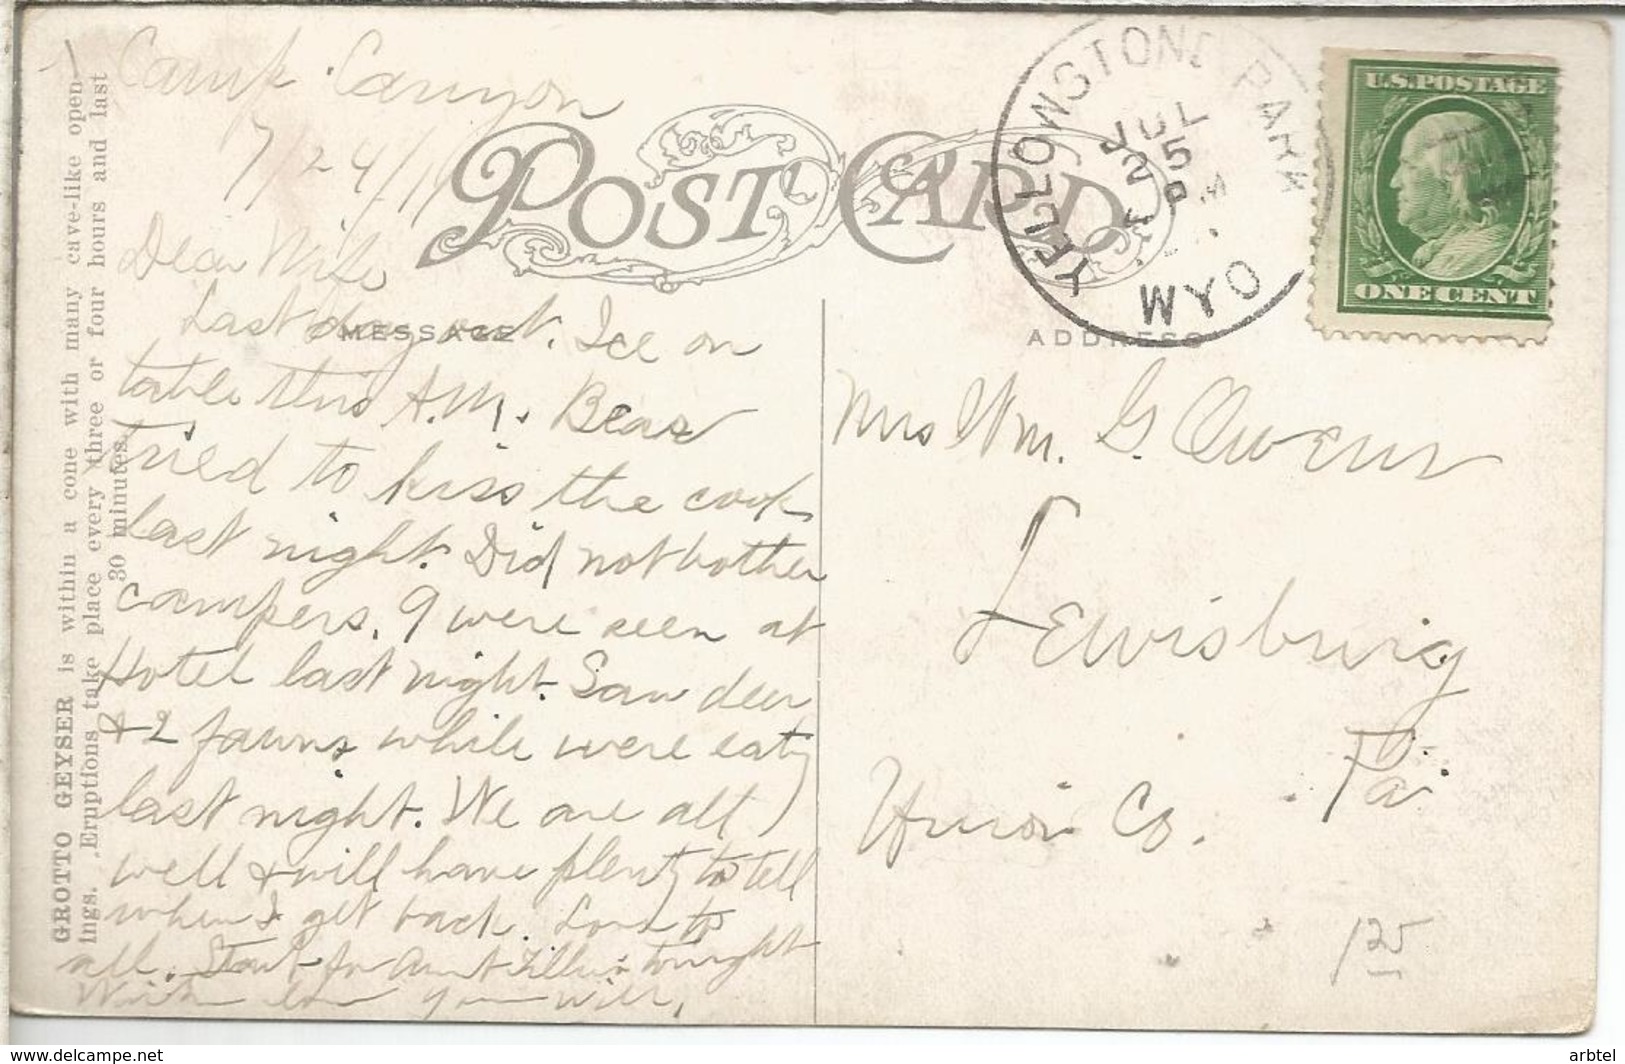 GROTTO GEYSER is within a cone with many cave-like open-
ings. Eruptions take place every three or four hours and last
30 minutes.
Camp Canyon
7/24/11
POST CARD
MESSAGE
Dear Wife
Last day out. Ice on
table this A.M. Bear
tried to kiss the cook
last night. Did not bother
campers. 9 were seen at
Hotel last night. Saw deer
& 2 fawns while were eatig
last night. We are all
well & will have plenty to tell
when I get back. Love to
all. Start for Aunt tonight
With love your Will.
YELLOWSTONE PARK
JUL
25
PM
WYO
U.S. POSTAGE
ONE CENT
ADDRESS
Mrs Wm. G. Owens
Lewisburg
Pa.
Union Co.
125
arbtel